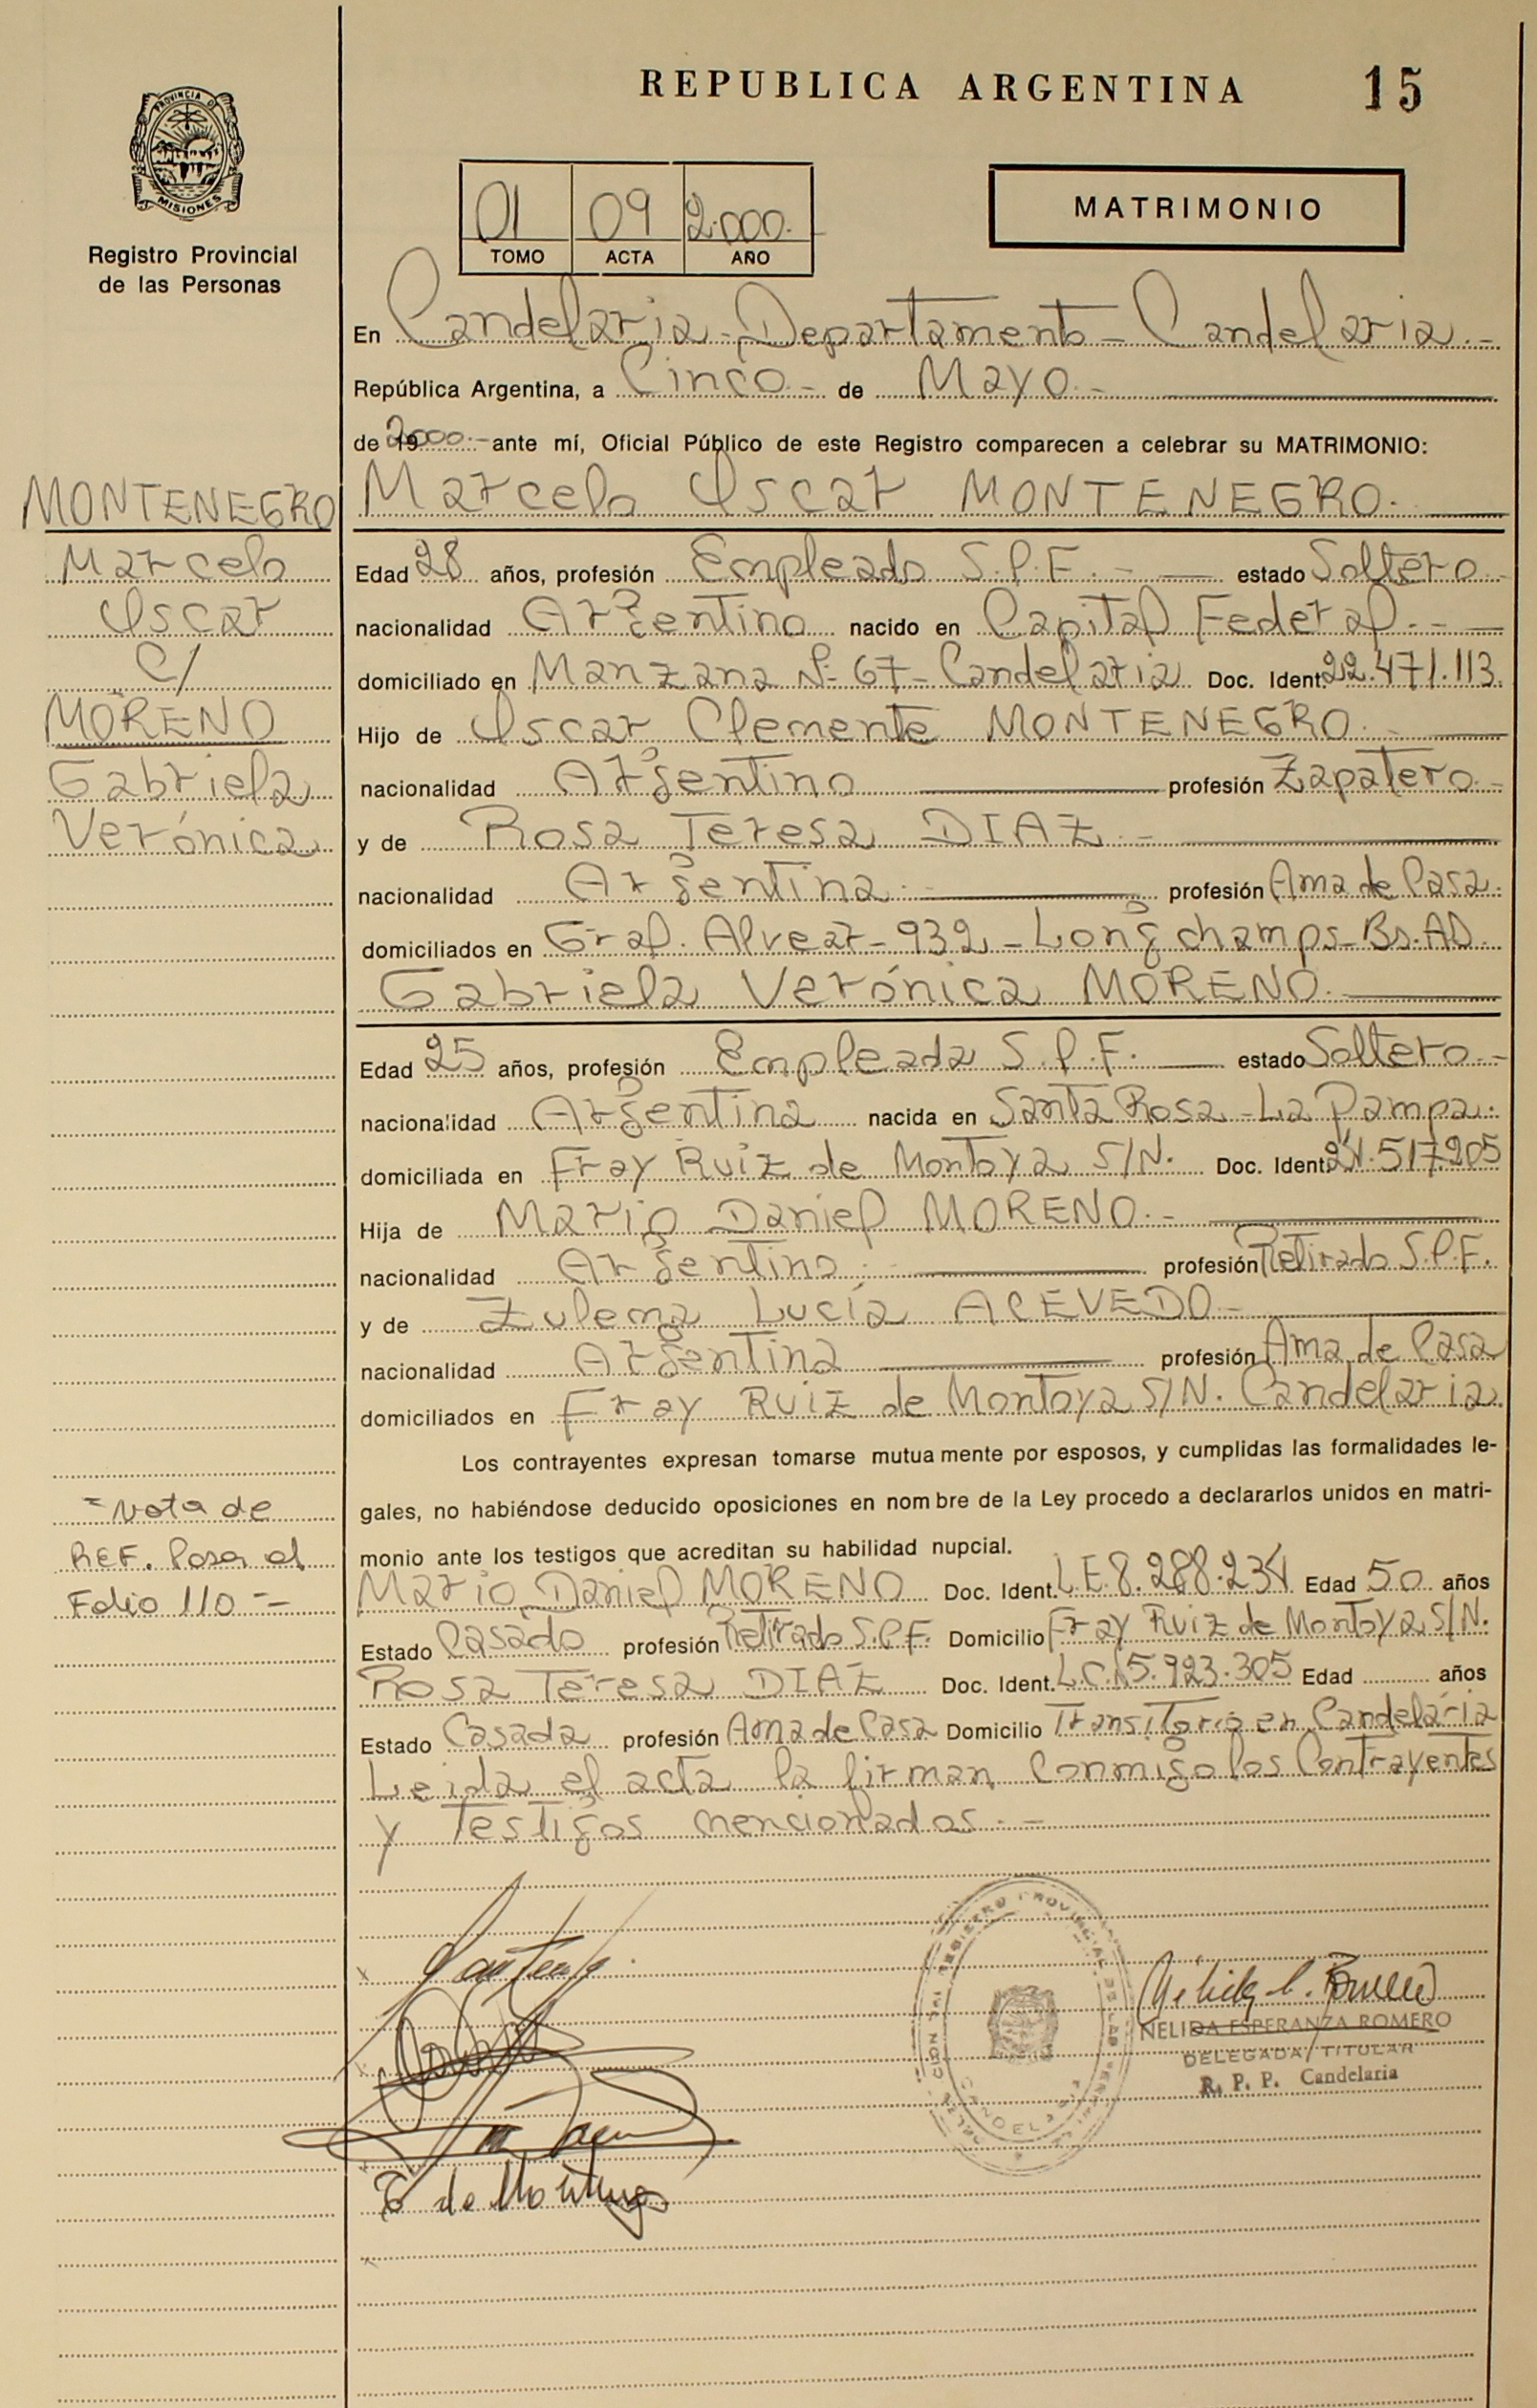 REPUBLICA ARGENTINA 15
PROVINCIA D
MISIONES
Registro Provincial
de las Personas
01 09 2.000.-
TOMO ACTA AÑO
MATRIMONIO
En Candelaria - Departamento - Candelaria.-
República Argentina, a Cinco.- de Mayo.-
de 2000.- ante mí, Oficial Público de este Registro comparecen a celebrar su MATRIMONIO:
Marcelo Oscar MONTENEGRO.
Edad 28 años, profesión Empleado S.P.F.- estado Soltero.-
nacionalidad Argentino nacido en Capital Federal.-
domiciliado en Manzana Nº 67 - Candelaria Doc. Ident. 22.471.113.
Hijo de Oscar Clemente MONTENEGRO.
nacionalidad Argentino profesión Zapatero.-
y de Rosa Teresa DIAZ.-
nacionalidad Argentina.- profesión Ama de Casa.
domiciliados en Gral. Alvear - 932 - Longchamps - Bs. As.
Gabriela Verónica MORENO.
Edad 25 años, profesión Empleada S.P.F. estado Soltero.-
nacionalidad Argentina nacida en Santa Rosa - La Pampa.
domiciliada en Fray Ruiz de Montoya S/N. Doc. Ident. 24.517.205
Hija de Mario Daniel MORENO.-
nacionalidad Argentino.- profesión Retirado S.P.F.
y de Zulema Lucía ACEVEDO.-
nacionalidad Argentina profesión Ama de Casa
domiciliados en Fray Ruiz de Montoya S/N. Candelaria.
Los contrayentes expresan tomarse mutuamente por esposos, y cumplidas las formalidades le-
gales, no habiéndose deducido oposiciones en nombre de la Ley procedo a declararlos unidos en matri-
monio ante los testigos que acreditan su habilidad nupcial.
Mario Daniel MORENO Doc. Ident. L.E 8.288.234 Edad 50 años
Estado Casado profesión Retirado S.P.F. Domicilio Fray Ruiz de Montoya S/N.
Rosa Teresa DIAZ Doc. Ident. L.C. 5.923.305 Edad años
Estado Casada profesión Ama de Casa Domicilio Transitorio en Candelaria
Leida el acta la firman conmigo los Contrayentes
y Testigos mencionados.-
MONTENEGRO
Marcelo
Oscar
C/
MORENO
Gabriela
Verónica
=Nota de
REF. Pasa al
Folio 110 =
NELIDA ESPERANZA ROMERO
DELEGADA TITULAR
R. P. P. Candelaria